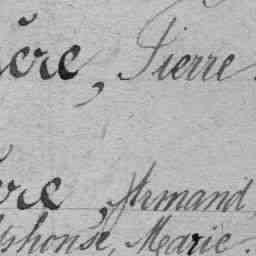 ère, Pierre.
ère, Armand,
lphonse, Marie.